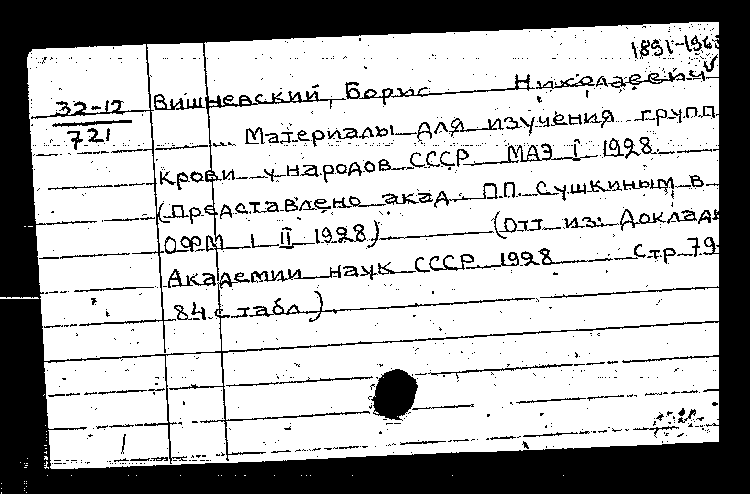 1891-196
32-12
721
Вишневский, Борис Николаевич
... Материалы для изучения групп
крови у народов СССР МАЭ I 1928.
(Представлено акад. П.П. Сушкиным в
ОФМ 1 II 1928) (Отт из: Доклады
Академии наук СССР 1928 Стр 79-
84 с табл.).